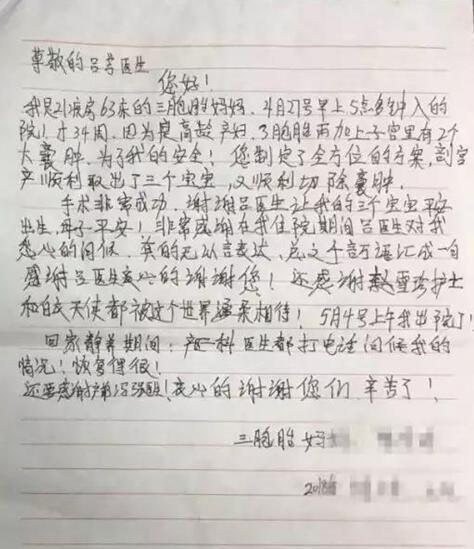 尊敬的吕芳医生
您好!
我是21病房63床的三胞胎妈妈,4月27号早上5点多钟入的
院!才34周,因为是高龄产妇,3胞胎再加上子宫里有2个
大囊肿,为了我的安全!您制定了全方位的方案,剖宫
产顺利取出了三个宝宝,又顺利切除囊肿.
手术非常成功,谢谢吕医生让我的三个宝宝平安
出生,母子平安!非常感谢在我住院期间吕医生对我
悉心的问候,真的无以言表达,总之千言万语汇成一句
感谢吕医生衷心的谢谢您!还感谢雪珍护士
和白衣天使都被这个世界温柔相待!5月4号上午我出院了!
回家静养期间:产一科医生都打电话问候我的
情况!恢复得很!
还要感谢产前!衷心的谢谢您们辛苦了!
三胞胎妈
2018